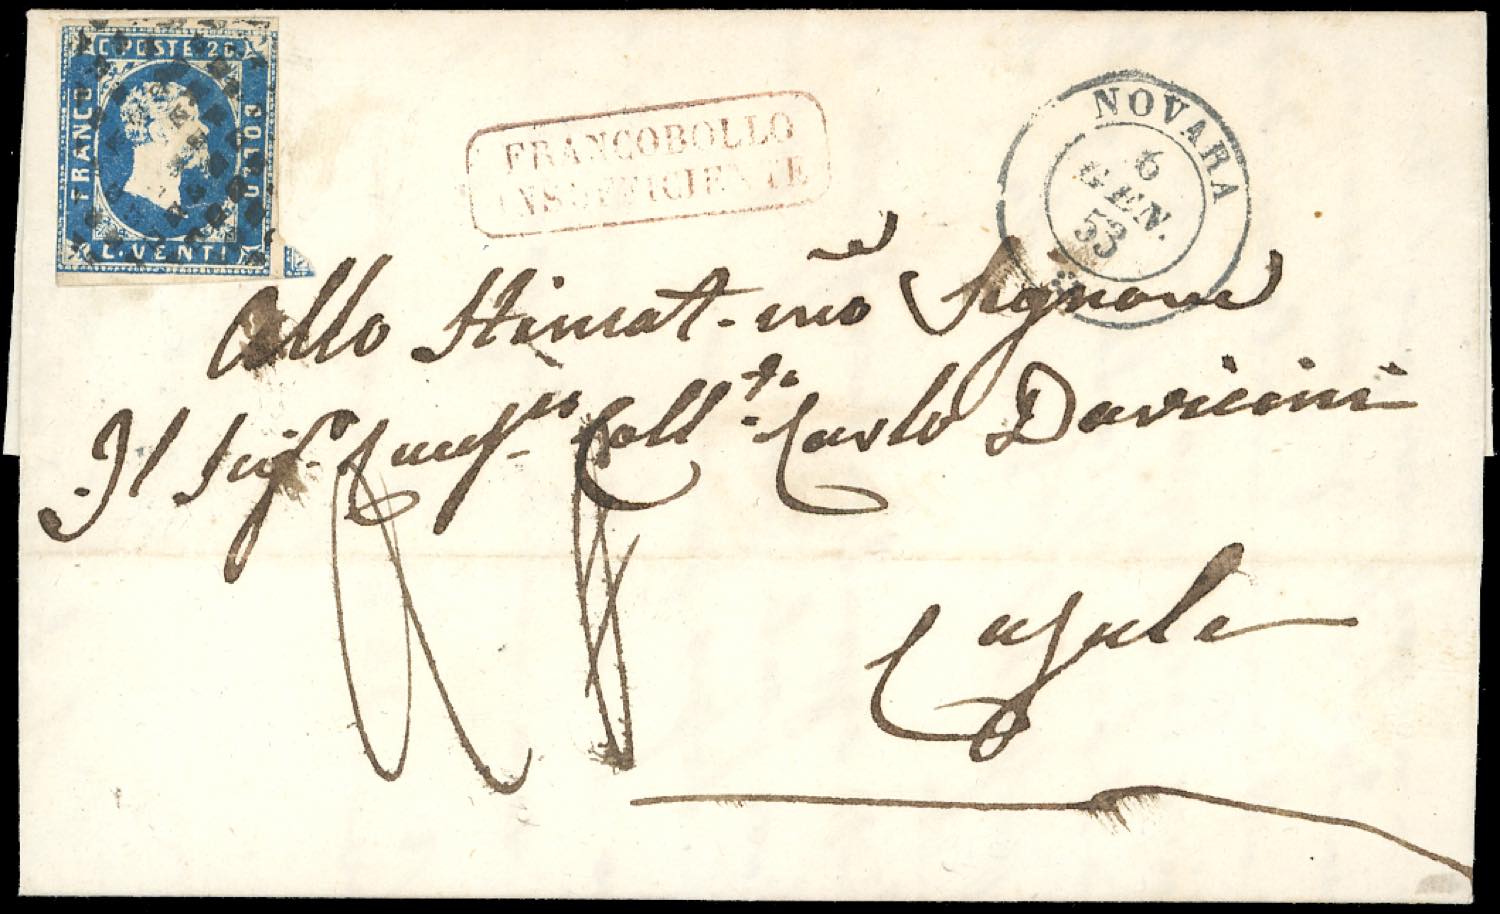 C. POSTE 20
FRANCO
BOLLO
C. VENTI
FRANCOBOLLO
INSUFFICIENTE
NOVARA
6
GEN.
53
Allo Stimat-mo Signore
Il Sig. Coll. Carlo Davicini
Casale